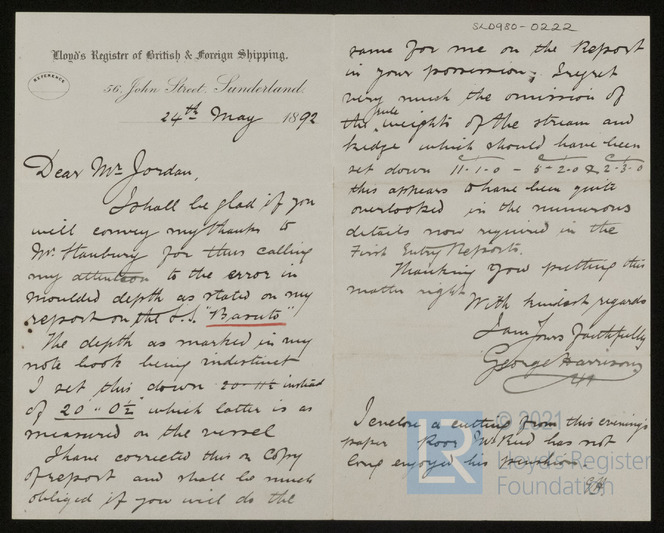 SLD980-0222
Lloyd's Register of British & Foreign Shipping.
REFERENCE
56, John Street, Sunderland
24th May 1892
Dear Mr Jordan,
I shall be glad if you
will convey my thanks to
Mr Stanbury for thus calling
my attention to the error in
moulded depth as stated on my
report on the S.S. "Basuto"
The depth as marked in my
note book being indistinct
I set this down 20-11½ instead
of 20" 0½" which latter is as
measured on the vessel
I have corrected this on Copy
of report and shall be much
obliged if you will do the
same for me on the Report
in your possession; I regret
very much the omission of
the rule weights of the stream and
kedge which should have been
set down 11-1-0 - 5-2-0 & 2-3-0
this appears to have been quite
overlooked in the numerous
details now required in the
First Entry Reports.
Thanking you putting this
matter right
With kindest regards
I am Yours faithfully
George Harrison
I enclose a cutting from this evening's
paper Poor Mr has not
long enjoyed his pension.
GH
LR
© 2021
Lloyd's Register
Foundation